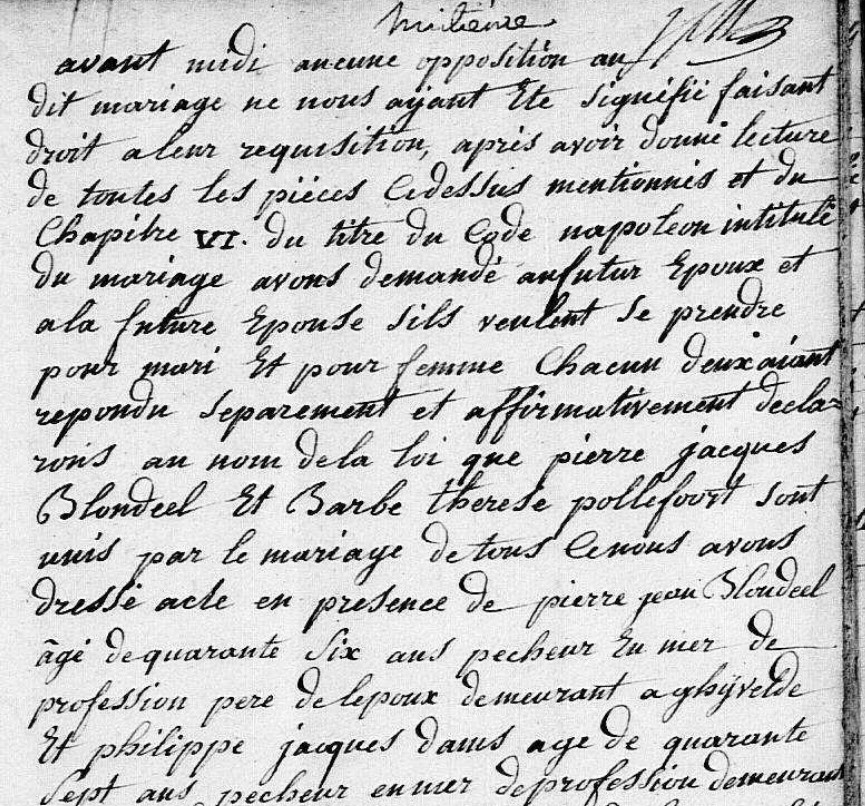 huitieme
avant midi aucune opposition au
dit mariage ne nous ayant Eté signifié faisant
droit a leur requisition, aprés avoir donné lecture
de toutes les piéces Cedessus mentionnés et du
Chapitre VI. du titre du Code napoleon intitulé
du mariage avons demandé aufutur Epoux et
a la future Epouse sils veulent se prendre
pour mari Et pour femme Chacun deux aiant
repondu separement et affirmativement decla-
rons au nom de la loi que pierre jacques
Blondeel Et Barbe therese pollefoort sont
unis par le mariage de tous Cenous avons
dressé acte en presence de pierre jean Blondeel
âgé de quarante six ans pecheur En mer de
profession pere de lepoux demeurant a ghÿvelde
Et philippe jacques dams age de quarante
sept ans pecheur en mer de profession demeurant